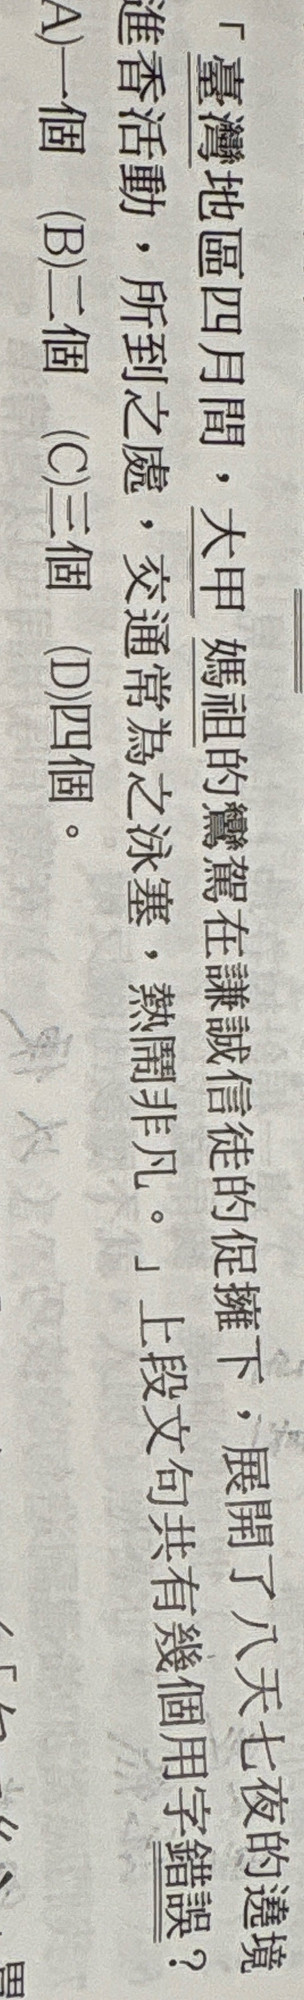 「臺灣地區四月間，大甲 媽祖的鸞駕在謙誠信徒的促擁下，展開了八天七夜的遶境
進香活動，所到之處，交通常為之泳塞，熱鬧非凡。」上段文句共有幾個用字錯誤？
(A)一個　(B)二個　(C)三個　(D)四個。